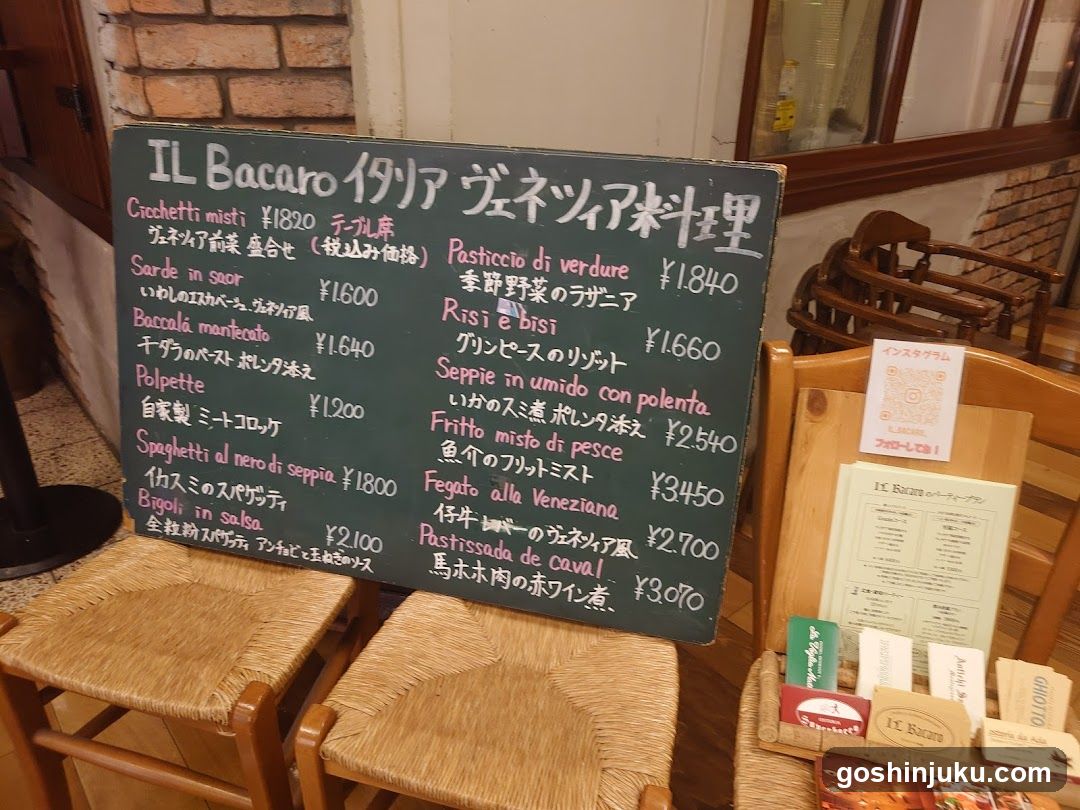 IL Bacaro イタリア ヴェネツィア料理
Cicchetti misti ¥1820 テーブル席
ヴェネツィア前菜 盛合せ (税込み価格)
Sarde in saor ¥1.600
いわしのエスカベーシュ、ヴェネツィア風
Baccalá mantecato ¥1.640
干ダラのペースト ポレンタ添え
Polpette ¥1.200
自家製 ミートコロッケ
Spaghetti al nero di seppia ¥1.800
イカスミのスパゲッティ
Bigoli in salsa ¥2.100
全粒粉スパゲッティ アンチョビと玉ねぎのソース
Pasticcio di verdure ¥1.840
季節野菜のラザニア
Risi e bisi ¥1.660
グリンピースのリゾット
Seppie in umido con polenta
いかのスミ煮 ポレンタ添え ¥2.540
Fritto misto di pesce
魚介のフリットミスト ¥3450
Fegato alla Veneziana
仔牛レバーのヴェネツィア風 ¥2.700
Pastissada de caval
馬ホホ肉の赤ワイン煮 ¥3.070
インスタグラム
IL_BACARO_
フォローしてね!
IL Bacaroのパーティープラン
GHIOTTO
IL Bacaro
goshinjuku.com